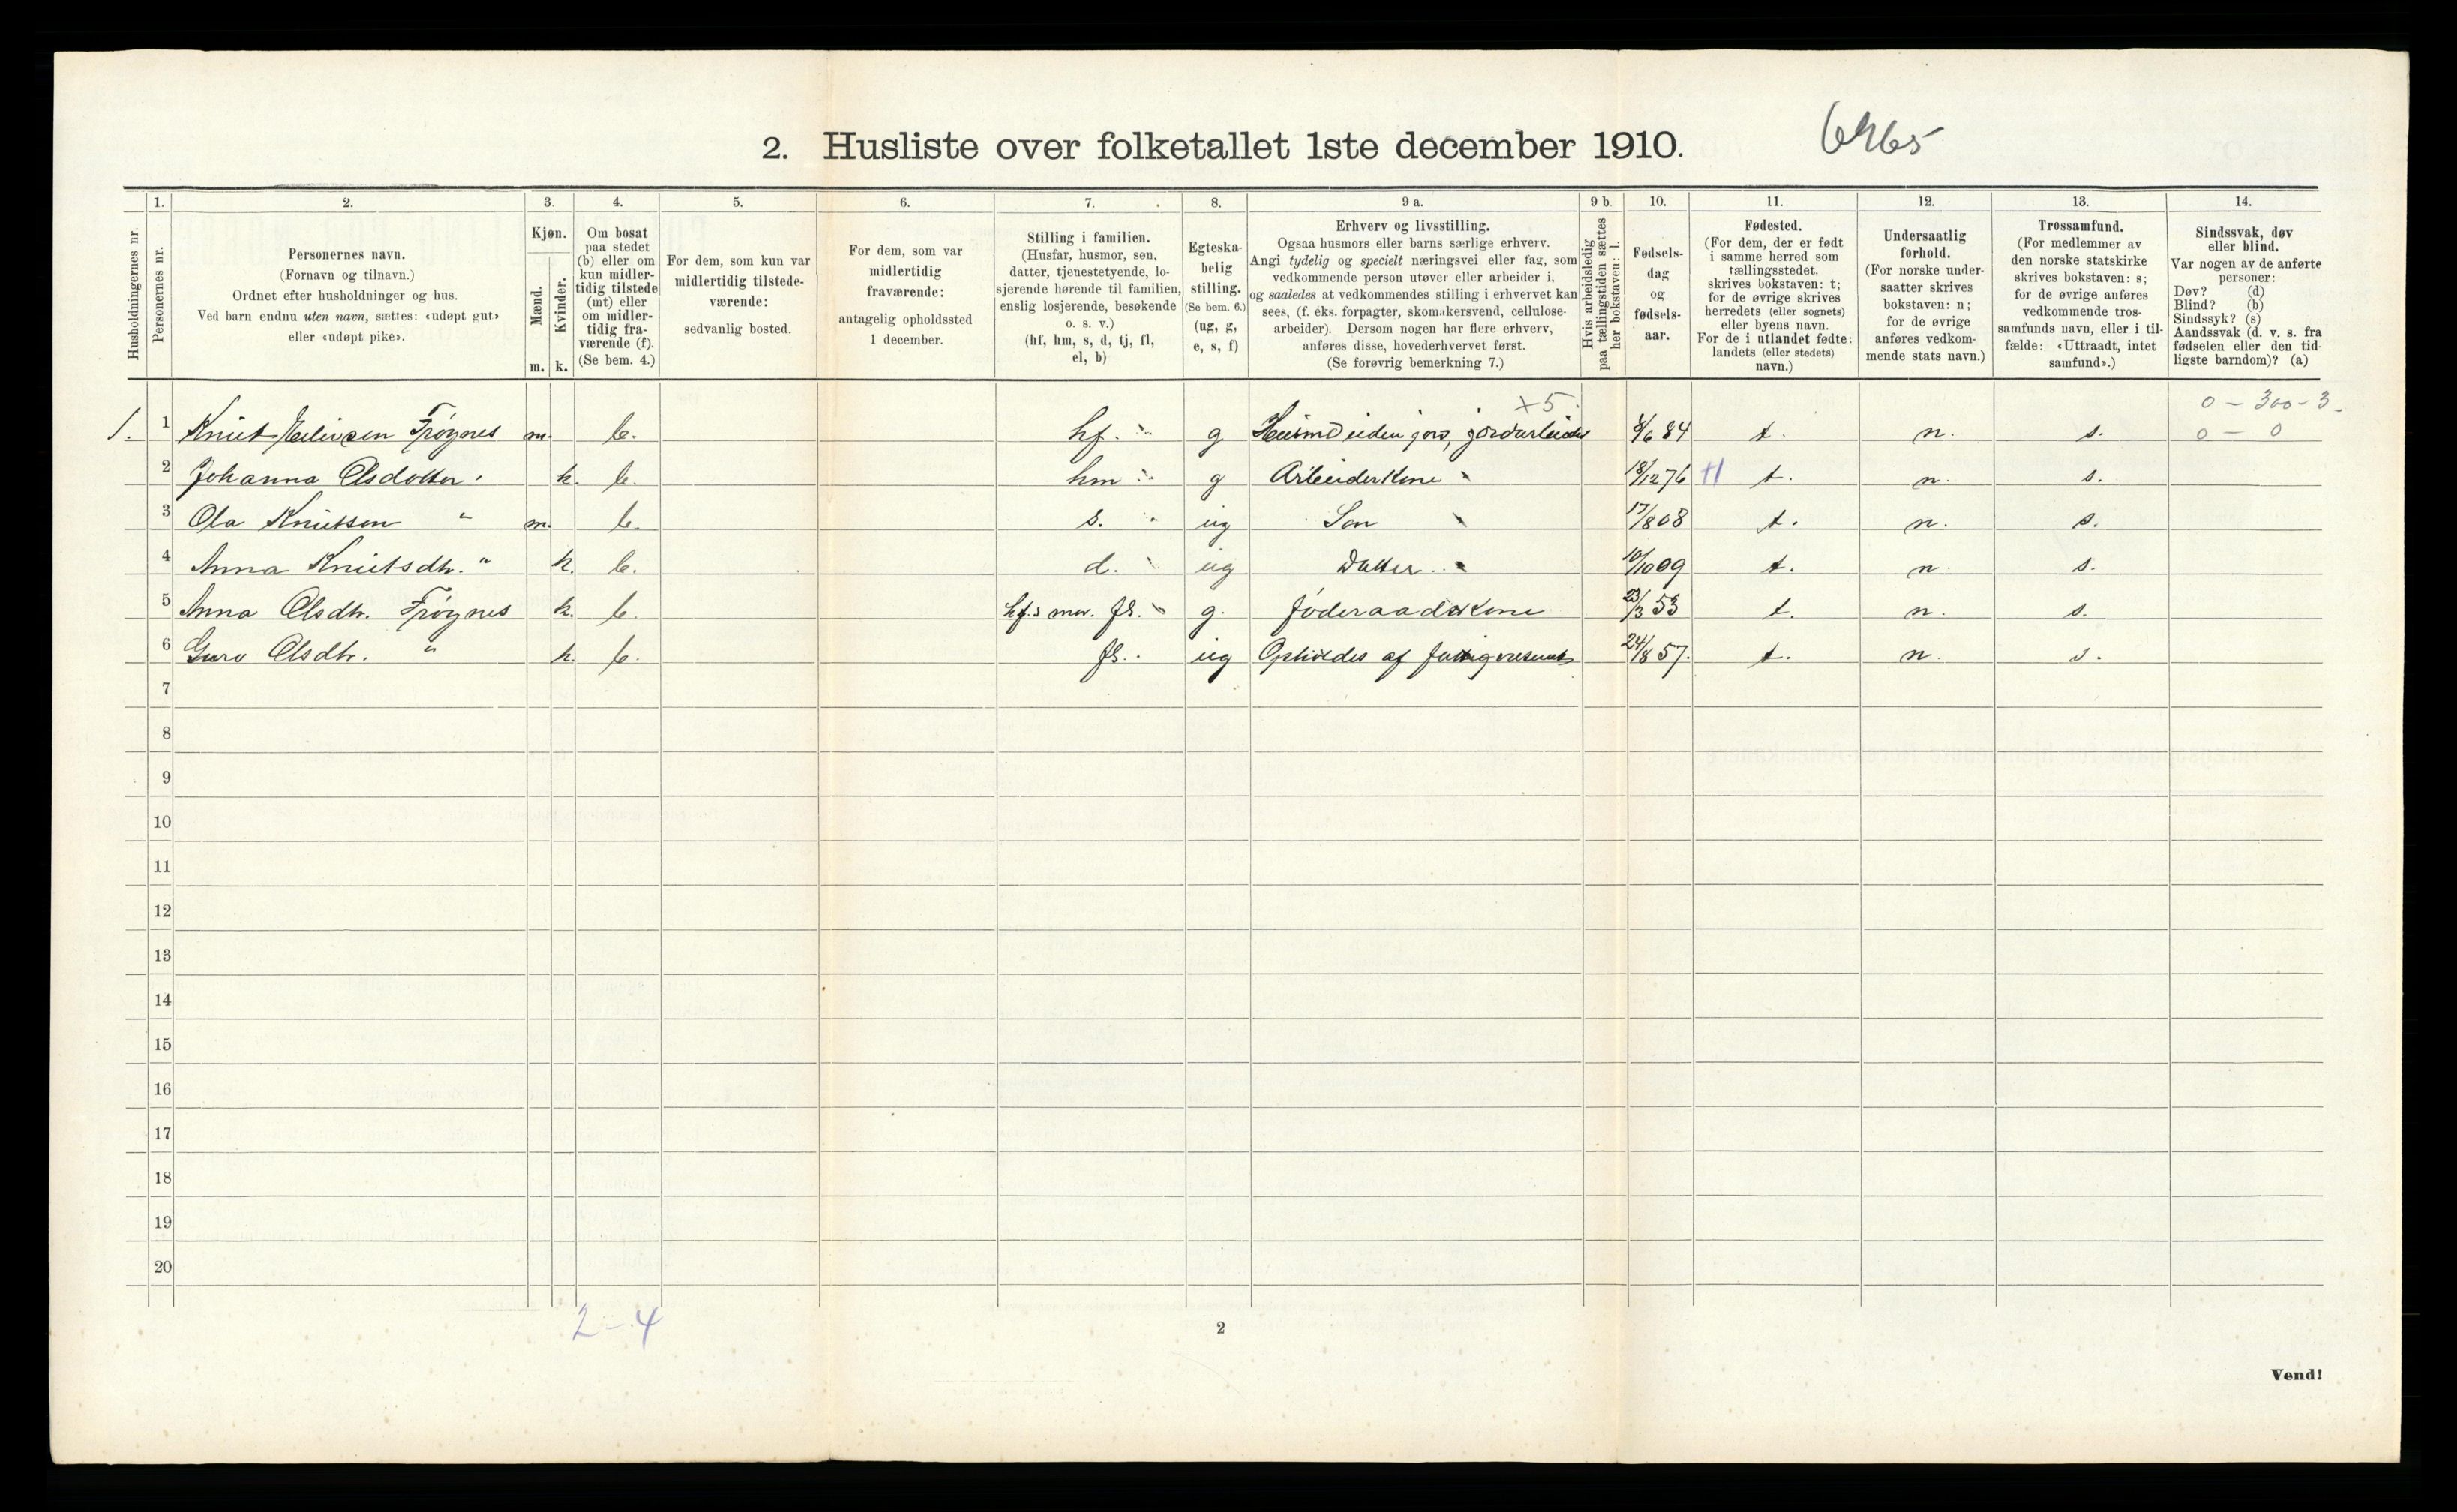 2. Husliste over folketallet 1ste december 1910.
6465
1. 2. 3. 4. 5. 6. 7. 8. 9 a. 9 b. 10. 11. 12. 13. 14.
Husholdningernes nr.
Personernes nr.
Personernes navn.
(Fornavn og tilnavn.)
Ordnet efter husholdninger og hus.
Ved barn endnu uten navn, sættes: «udøpt gut»
eller «udøpt pike».
Kjøn.
Mænd.
Kvinder.
m. k.
Om bosat
paa stedet
(b) eller om
kun midler-
tidig tilstede
(mt) eller
om midler-
tidig fra-
værende (f).
(Se bem. 4.)
For dem, som kun var
midlertidig tilstede-
værende:
sedvanlig bosted.
For dem, som var
midlertidig
fraværende:
antagelig opholdssted
1 december.
Stilling i familien.
(Husfar, husmor, søn,
datter, tjenestetyende, lo-
sjerende hørende til familien,
enslig losjerende, besøkende
o. s. v.)
(hf, hm, s, d, tj, fl,
el, b)
Egteska-
belig
stilling.
(Se bem. 6.)
(ug, g,
e, s, f)
Erhverv og livsstilling.
Ogsaa husmors eller barns særlige erhverv.
Angi tydelig og specielt næringsvei eller fag, som
vedkommende person utøver eller arbeider i,
og saaledes at vedkommendes stilling i erhvervet kan
sees, (f. eks. forpagter, skomakersvend, cellulose-
arbeider). Dersom nogen har flere erhverv,
anføres disse, hovederhvervet først.
(Se forøvrig bemerkning 7.)
Hvis arbeidsledig
paa tællingstiden sættes
her bokstaven: l.
Fødsels-
dag
og
fødsels-
aar.
Fødested.
(For dem, der er født
i samme herred som
tællingsstedet,
skrives bokstaven: t;
for de øvrige skrives
herredets (eller sognets)
eller byens navn.
For de i utlandet fødte:
landets (eller stedets)
navn.)
Undersaatlig
forhold.
(For norske under-
saatter skrives
bokstaven: n;
for de øvrige
anføres vedkom-
mende stats navn.)
Trossamfund.
(For medlemmer av
den norske statskirke
skrives bokstaven: s;
for de øvrige anføres
vedkommende tros-
samfunds navn, eller i til-
fælde: «Uttraadt, intet
samfund».)
Sindssvak, døv
eller blind.
Var nogen av de anførte
personer:
Døv? (d)
Blind? (b)
Sindssyk? (s)
Aandssvak (d. v. s. fra
fødselen eller den tid-
ligste barndom)? (a)
x 5. 0 - 300 - 3.
1. 1 Knut Eilivsen Frøynes m. b. hf. g Husmd uden jord, jordarbeider 8/6 84 t. n. s. 0 - 0
2 Johanna Olsdotter " k. b. hm g Arbeiderkone 18/12 76 t. n. s.
3 Ola Knutsen " m. b. s. ug Søn 17/8 08 t. n. s.
4 Anna Knutsdtr. " k. b. d. ug Datter 10/10 09 t. n. s.
5 Anna Olsdtr. Frøynes k. b. hf.s mor. fl. g. Føderaadskone 23/3 53 t. n. s.
6 Guro Olsdtr. " k. b. fl. ug Opholdes af fattigvesenet 24/8 57. t. n. s.
7
8
9
10
11
12
13
14
15
16
17
18
19
20
2-4
2
Vend!